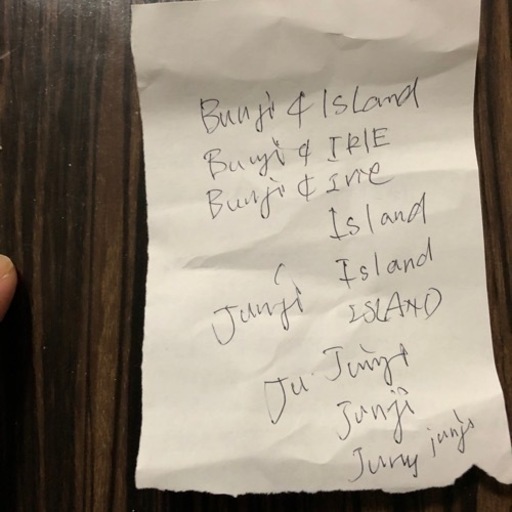 Bunji & Island
Bunji & IRIE
Bunji & Irie
Island
Island
Junji ISLAND
Ju. Junji
Junji
Juny junji